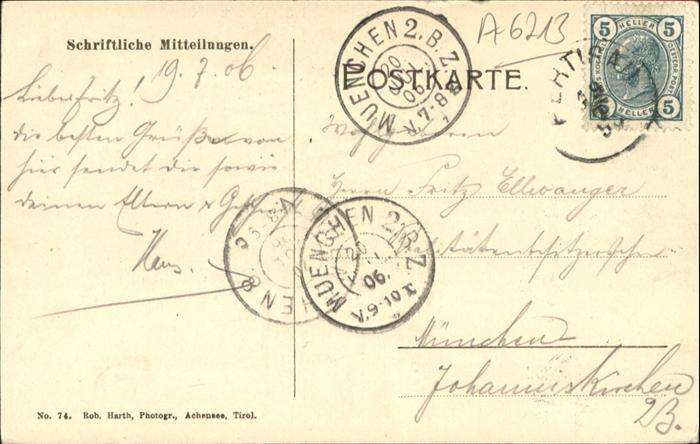 Schriftliche Mitteilungen.
19.7.06
Lieber Fritz!
die besten Grüße von
hier sendet dir sowie
deinen Eltern &
Hans.
No. 74. Rob. Harth, Photogr., Achensee, Tirol.
A-6213
POSTKARTE.
5 HELLER 5
5 HELLER 5
PERTISAU
MUENCHEN 2.B.Z.
20 JUL 06
V.7-8
Wohlgeboren
Herrn Fritz Ellwanger
MUENCHEN 2.B.Z
20
06.
V.9-10
München
Johanniskirchen
2B.